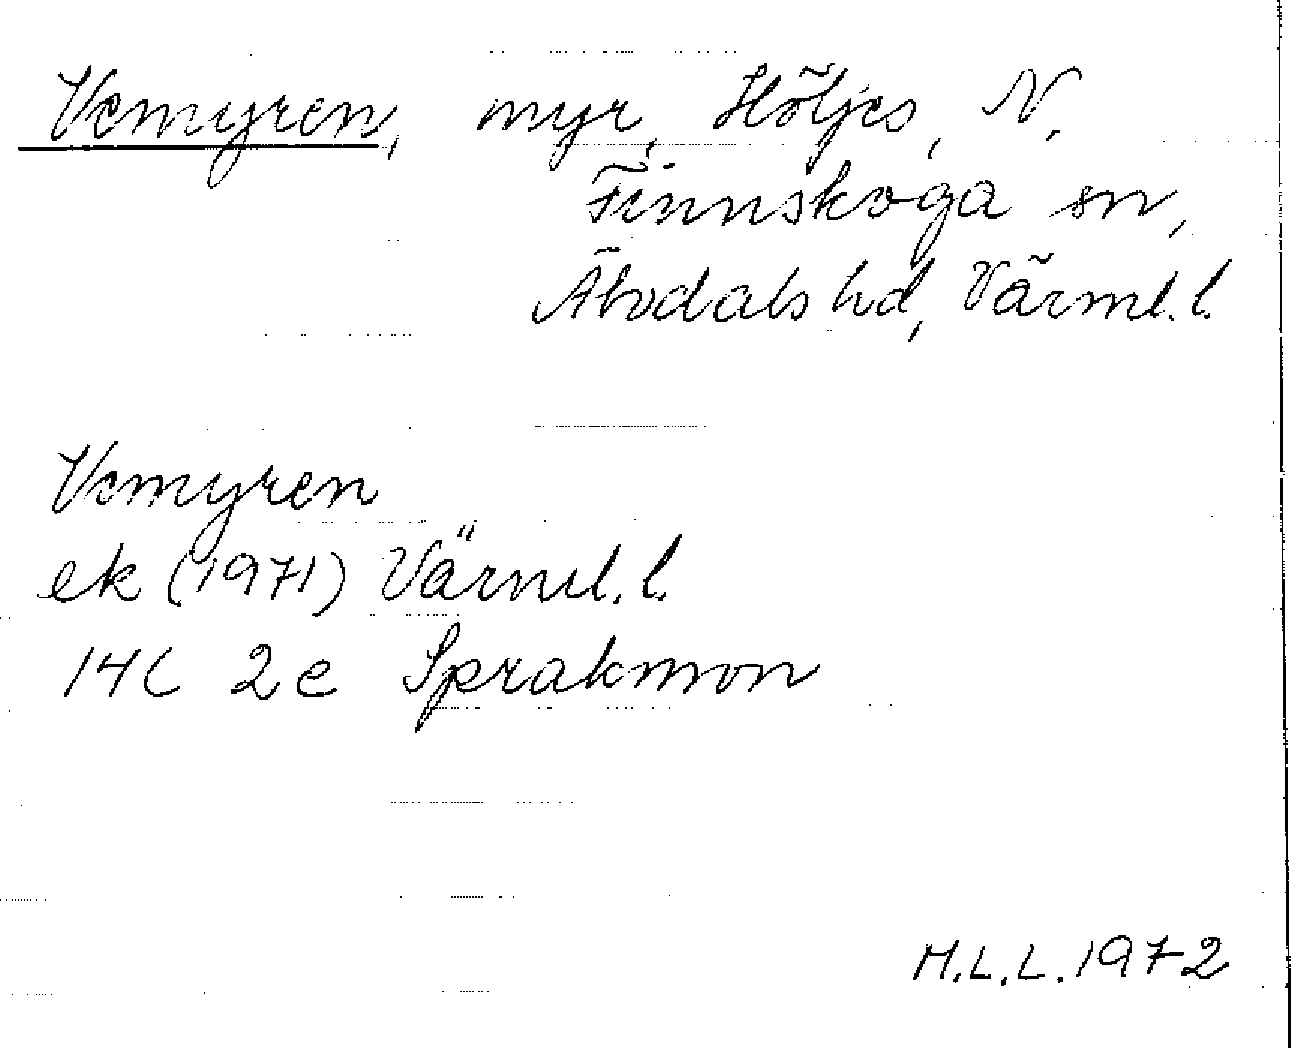 Vemyren, myr, Höljes, N.
Finnskoga sn,
Älvdals hd, Värml. l.
Vemyren
ek (1971) Värml. l.
14C 2e Sprakmon
M.L.L. 1972